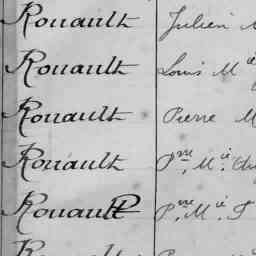 Rouault Julien
Rouault Louis M ie
Rouault Pierre M
Rouault P re. M. ie.
Rouault P re. M. ie.